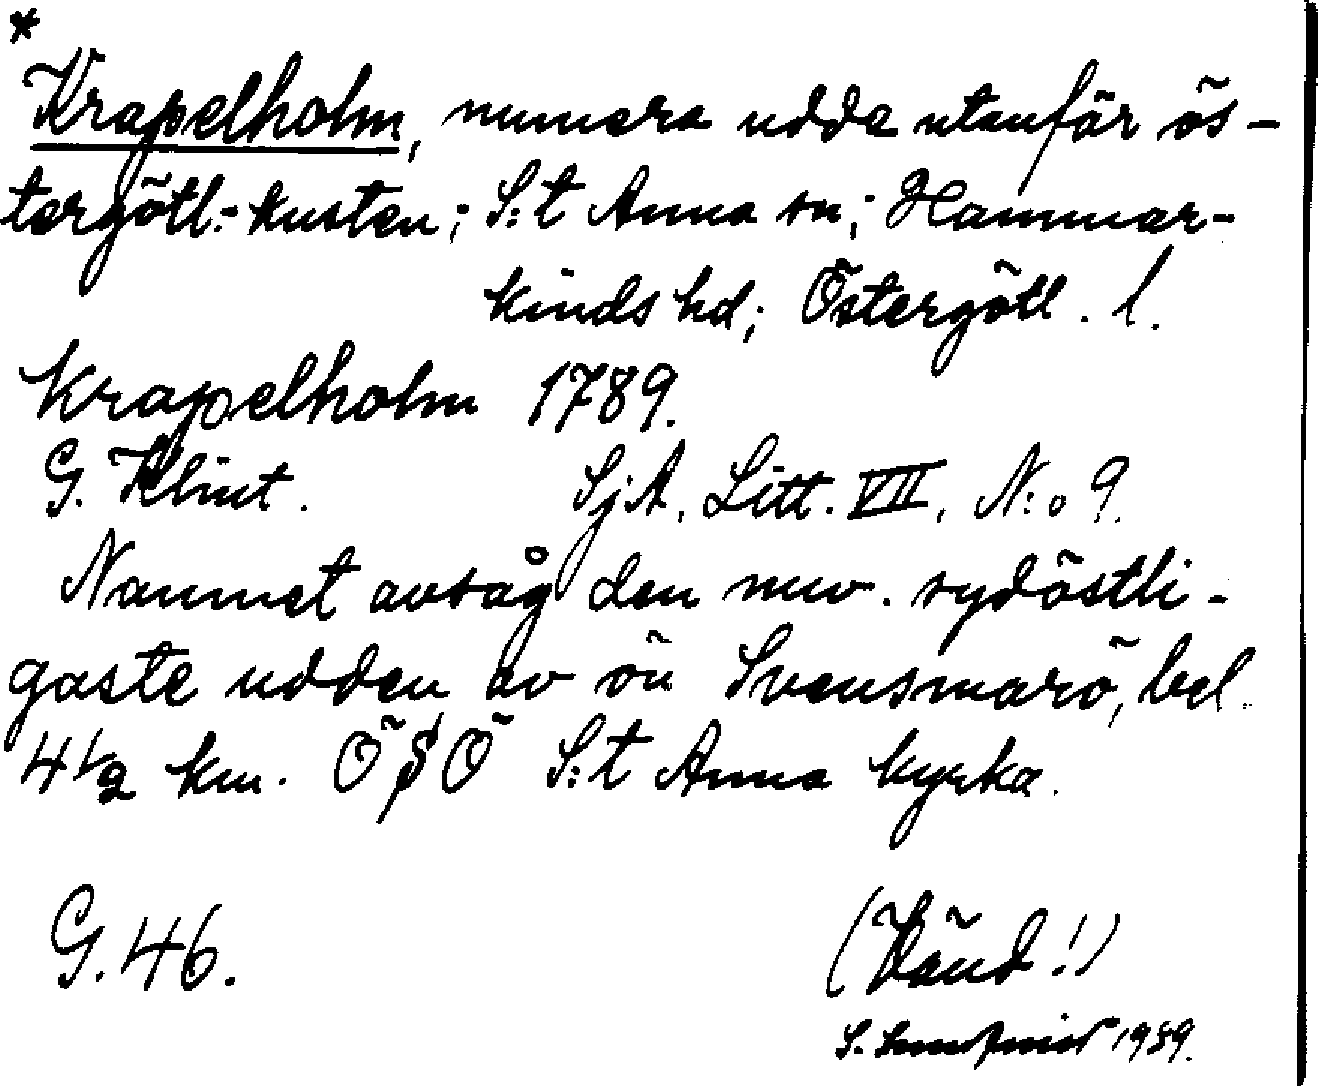 *
Krapelholm, numera udde utanför ös-
tergötl.-kusten; S:t Anna sn; Hammar-
kinds hd; Östergötl. l.
Krapelholm 1789.
G. Klint. SjA, Litt. VII, N:o 9.
Namnet avsåg den nuv. sydöstli-
gaste udden av ön Svensmarö, bel.
4 1/2 km. Ö S Ö S:t Anna kyrka.
G. 46.
(Vänd!)
S. 1959.